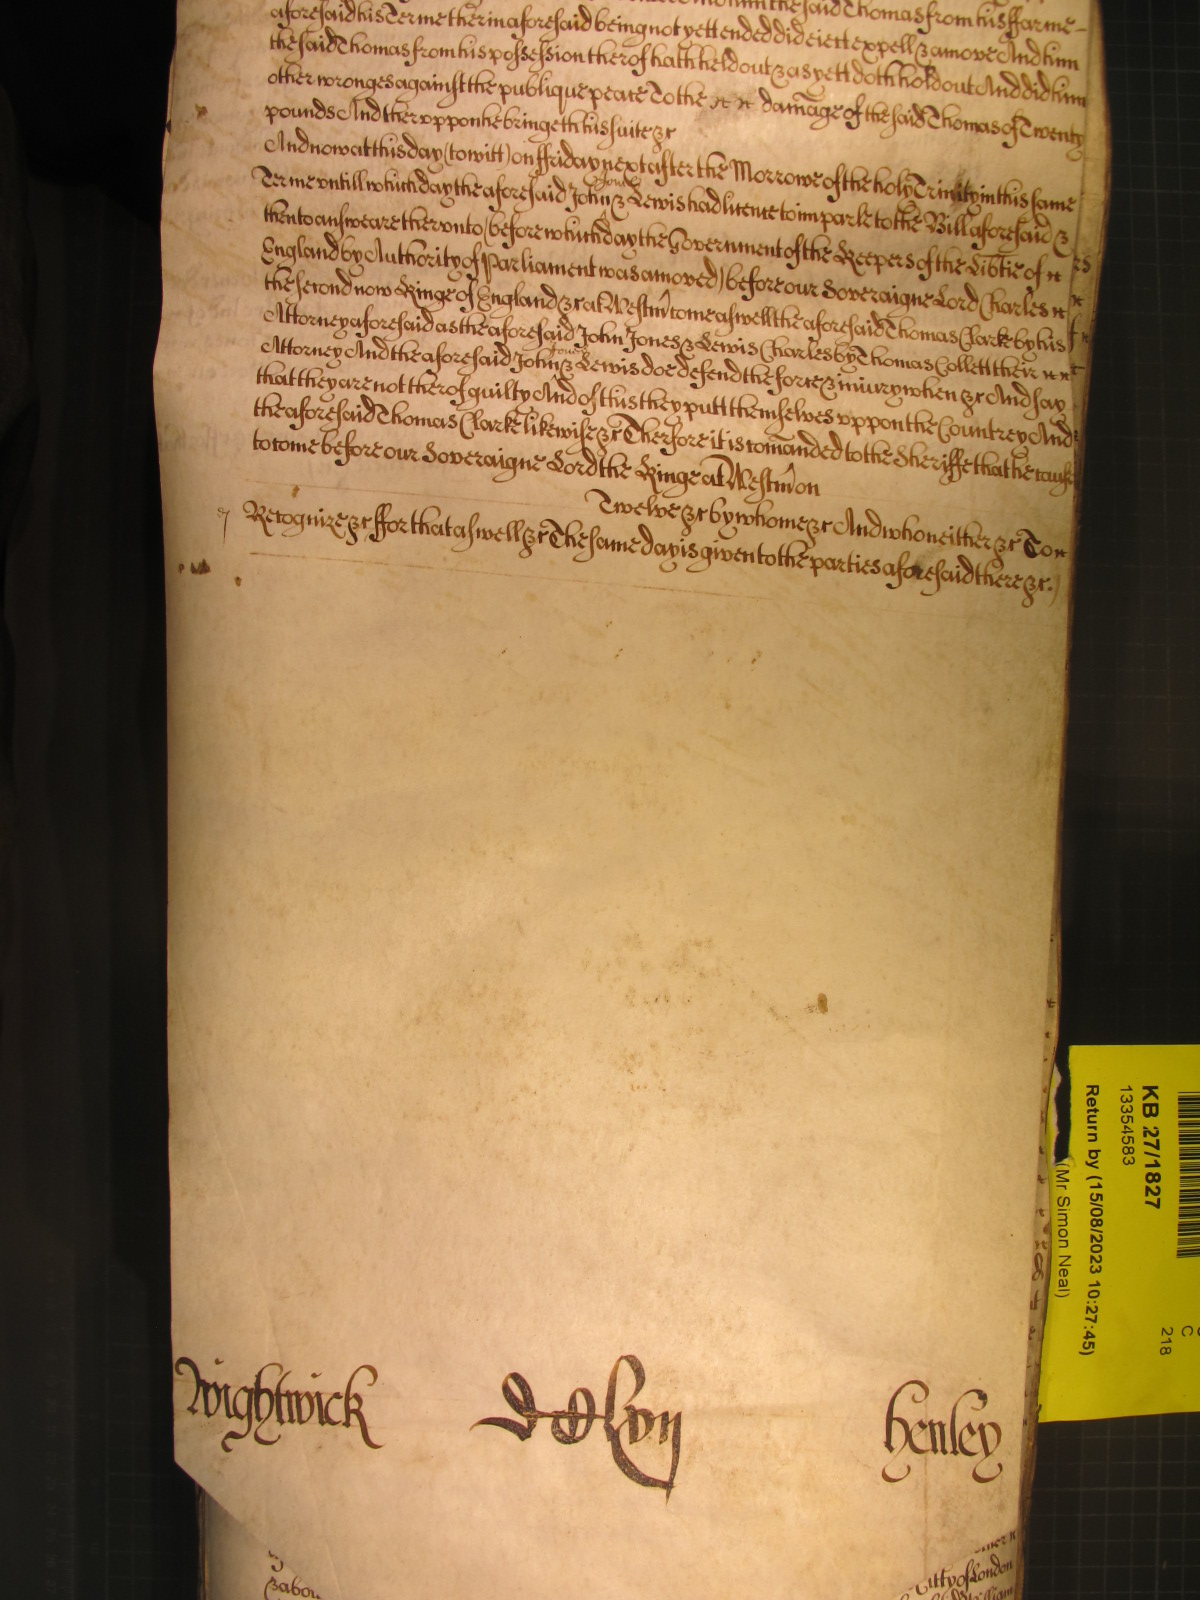 the said Thomas from his ffarme
aforesaid his Terme therin aforesaid being not yett ended did eiect expell & amove And him
the said Thomas from his possession therof hath held out & as yett doth hold out And did him
other wronges against the publique peace To the damage of the said Thomas of Twenty
pounds And theruppon he bringeth his suite &c
And now at this day (to witt) on ffriday next after the Morrowe of the holy Trinity in this same
Terme untill which day the aforesaid John Jones & Lewis had licence to imparle to the Bill aforesaid &
then to answeare therunto (before which day the Government of the Keepers of the Libtie of
England by Authority of Parliament was amoved) before our Soveraigne Lord Charles
the second now Kinge of England &c at Westm come aswell the aforesaid Thomas Clarke by his
Attorney aforesaid as the aforesaid John Jones & Lewis Charles by Thomas Collett their
Attorney And the aforesaid John Jones & Lewis doe defend the force & iniury when &c And say
that they are not therof guilty And of this they putt themselves uppon the Countrey And
the aforesaid Thomas Clarke likewise &c Therfore it is comanded to the Sheriffe that he cause
to come before our Soveraigne Lord the Kinge at Westm on
Twelve &c by whome &c And who neither &c To
Recognize &c ffor that aswell &c The same day is given to the parties aforesaid there &c.
Wightwick
henley
Citty of London
William
KB 27/1827
13354583
Return by (15/08/2023 10:27:45)
(Mr Simon Neal)
C
218